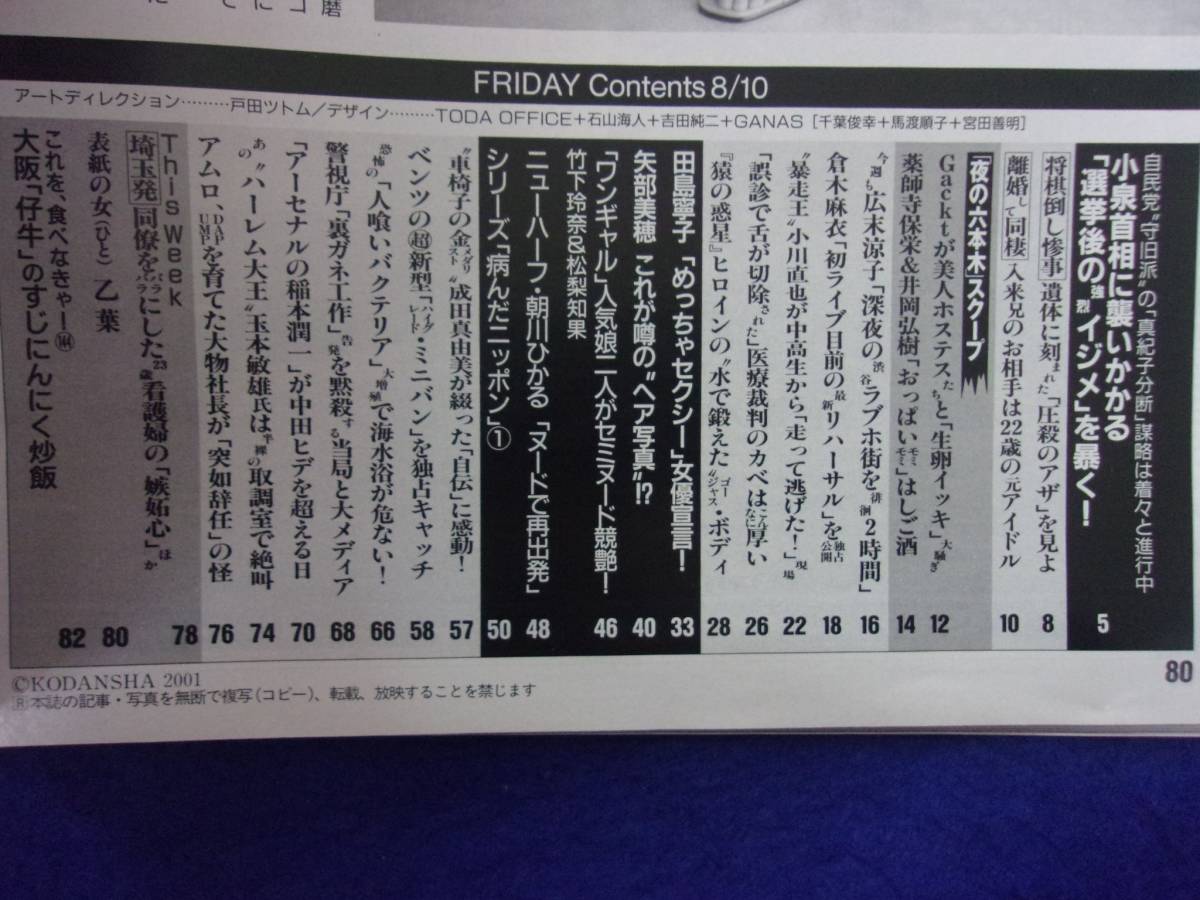 FRIDAY Contents 8/10
アートディレクション………戸田ツトム／デザイン………TODA OFFICE＋石山海人＋吉田純二＋GANAS［千葉俊幸＋馬渡順子＋宮田善明］
自民党〝守旧派〟の「真紀子分断」謀略は着々と進行中
小泉首相に襲いかかる
「選挙後の強烈イジメ」を暴く！ 5
将棋倒し惨事 遺体に刻まれた「圧殺のアザ」を見よ 8
離婚して同棲 入来兄のお相手は22歳の元アイドル 10
「夜の六本木」スクープ
Gacktが美人ホステスたちと「生卵イッキ」大騒ぎ 12
薬師寺保栄＆井岡弘樹「おっぱいモミモミ」はしご酒 14
今週も広末涼子「深夜の渋谷ラブホ街を徘徊2時間」 16
倉木麻衣「初ライブ目前の最新リハーサル」を独占公開 18
〝暴走王〟小川直也が中高生から「走って逃げた！」現場 22
「誤診で舌が切除された」医療裁判のカベはこんなに厚い 26
『猿の惑星』ヒロインの〝水で鍛えた〟ゴージャス・ボディ 28
田島寧子「めっちゃセクシー」女優宣言！ 33
矢部美穂 これが噂の〝ヘア写真〟!? 40
「ワンギャル」人気娘二人がセミヌード競艶！
竹下玲奈＆松梨知果 46
ニューハーフ・朝川ひかる「ヌードで再出発」 48
シリーズ「病んだニッポン」① 50
〝車椅子の金メダリスト〟成田真由美が綴った「自伝」に感動！ 57
ベンツの超新型「ハイグレード・ミニバン」を独占キャッチ 58
恐怖の「人喰いバクテリア」大増殖で海水浴が危ない！ 66
警視庁「裏ガネ工作」告発を黙殺する当局と大メディア 68
「アーセナルの稲本潤一」が中田ヒデを超える日 70
あの〝ハーレム大王〟玉本敏雄氏は半裸の取調室で絶叫 74
アムロ、DA PUMPを育てた大物社長が「突如辞任」の怪 76
This Week
埼玉発 同僚をバラバラにした23歳看護婦の「嫉妬心」ほか 78
表紙の女（ひと） 乙葉 80
これを、食べなきゃー
大阪「仔牛」のすじにんにく炒飯 82
80
©KODANSHA 2001
Ⓡ本誌の記事・写真を無断で複写（コピー）、転載、放映することを禁じます